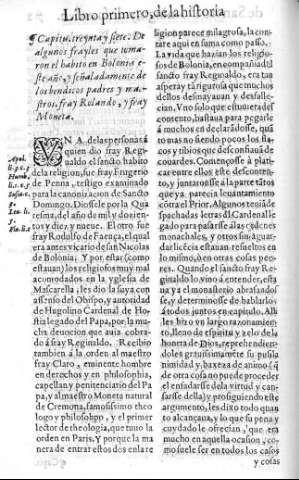 Libro primero, de la historia
¶ Capitu. treynta y siete. De
algunos frayles que toma-
ron el habito en Bolonia e
ste año, y señaladamente de
los bendictos padres y mae-
stros, fray Rolando, y fray
Moneta.
VNA de las personas à
quien dio fray Regi-
naldo el sancto habito
de la religion, fue fray Frugerio
de Penna, testigo examinado
para la canonizacion de Sancto
Domingo. Diosele por la Qua
resma, del año de mil y dozien-
tos, diez y nueve. El otro fue
fray Rodolfo de Faença, el qual
era antes vicario de san Nicolas
de Bolonia, Y por estar (como
estavan) los religiosos muy mal
acomodados en la yglesia de
Mascarella, les dio la suya con
assenso del Obispo, y autoridad
de Hugolino Cardenal de Ho-
stia legado del Papa, por la mu-
cha devocion que avia cobra-
do à fray Reginaldo. Recibio
tambien à la orden al maestro
fray Claro, eminente hombre
en derechos y en philosophia,
capellan y penitenciario del Pa
pa, y al maestro Moneta natural
de Cremona, famosissimo theo
logo y philosopho, y el primer
lector de theologia, que tuvo la
orden en Paris. Y porque la ma
nera de entrar estos dos en la re
ligion parece milagrosa, la con-
tare aqui en suma como passo.
La vida que hazian los religio-
sos de Bolonia, en compañia del
sancto fray Reginaldo, era tan
aspera y tã rigurosa que muchos
dellos desmayavan y desfalle-
cian. Vno solo que estuviera des
contento, bastava para pegarle
à muchos en declarãdose, quã-
to mas no siendo pocos los fla-
cos y tibios que deshazian de co
uardes. Començosse à plati-
car entre ellos este desconten-
to, y juntaronse à la parte tãtos
que ya parecia levantamiento
contra el Prior. Algunos teniã de
spachadas letras dl Cardenal le-
gado para passarse à las ordenes
monachales, y otros sin aguar-
dar licecia estavan resueltos en
lo mismo, o en otras cosas peo-
res. Quando el sancto fray Re-
ginaldo lo vino a entender, esta
va ya el monasterio abrasado-
se, y determinose de hablarlos
à todos juntos en capitulo. Alli
les hizo vn largo razonamien-
to, lleno de espiritu y zelo de la
honrra de Dios, reprehendien-
doles gravissimamente su pusila
nimidad, y baxeza de animo (q̃
de otra cosa no puede proceder
el enfadarse de la virtud y can-
sarse della) y prosiguiendo este
argumento, les dixo todo quan
to alcançava, y lo que su pena y
cuydado le ofrecian, q̃ era
mucho en aquella ocasion, co-
mo suele ser en todos los casos
y cosas